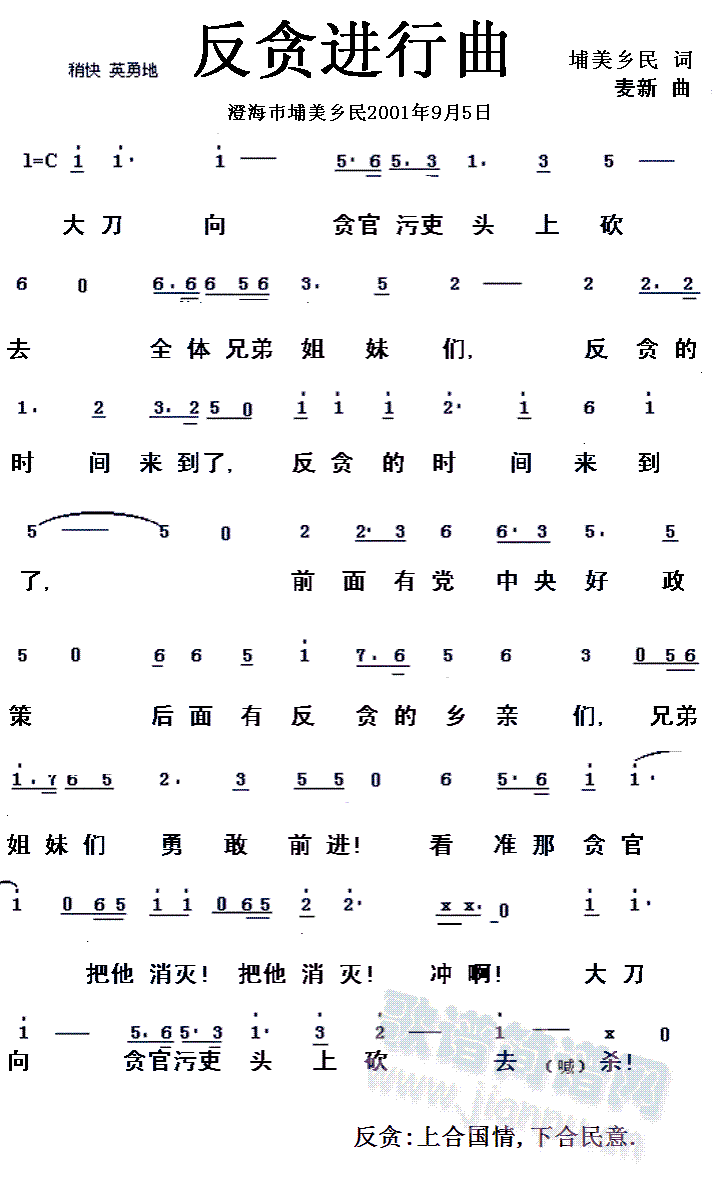 反贪进行曲
稍快 英勇地
埔美乡民 词
麦新 曲
澄海市埔美乡民2001年9月5日
1=C 1 1· 1 — 5·6 5.3 1. 3 5 —
大刀 向 贪官污吏头上砍
6 0 6.6 6 5 6 3. 5 2 — 2 2.2
去 全体兄弟姐妹们, 反贪的
1. 2 3.2 5 0 1 1 1 2· 1 6 1
时间来到了, 反贪的时间来到
5 — 5 0 2 2·3 6 6·3 5. 5
了, 前面有党中央好政
5 0 6 6 5 1 7.6 5 6 3 0 5 6
策 后面有反贪的乡亲们, 兄弟
1.7 6 5 2. 3 5 5 0 6 5·6 1 1·
姐妹们 勇敢前进! 看准那贪官
1 0 6 5 1 1 0 6 5 2 2· x x· 0 1 1·
把他消灭! 把他消灭! 冲啊! 大刀
1 — 5.6 5·3 1· 3 2 — 1 — x 0
向 贪官污吏头上砍 去(喊)杀!
歌谱简谱网
www.jianpu.cn
反贪:上合国情,下合民意.